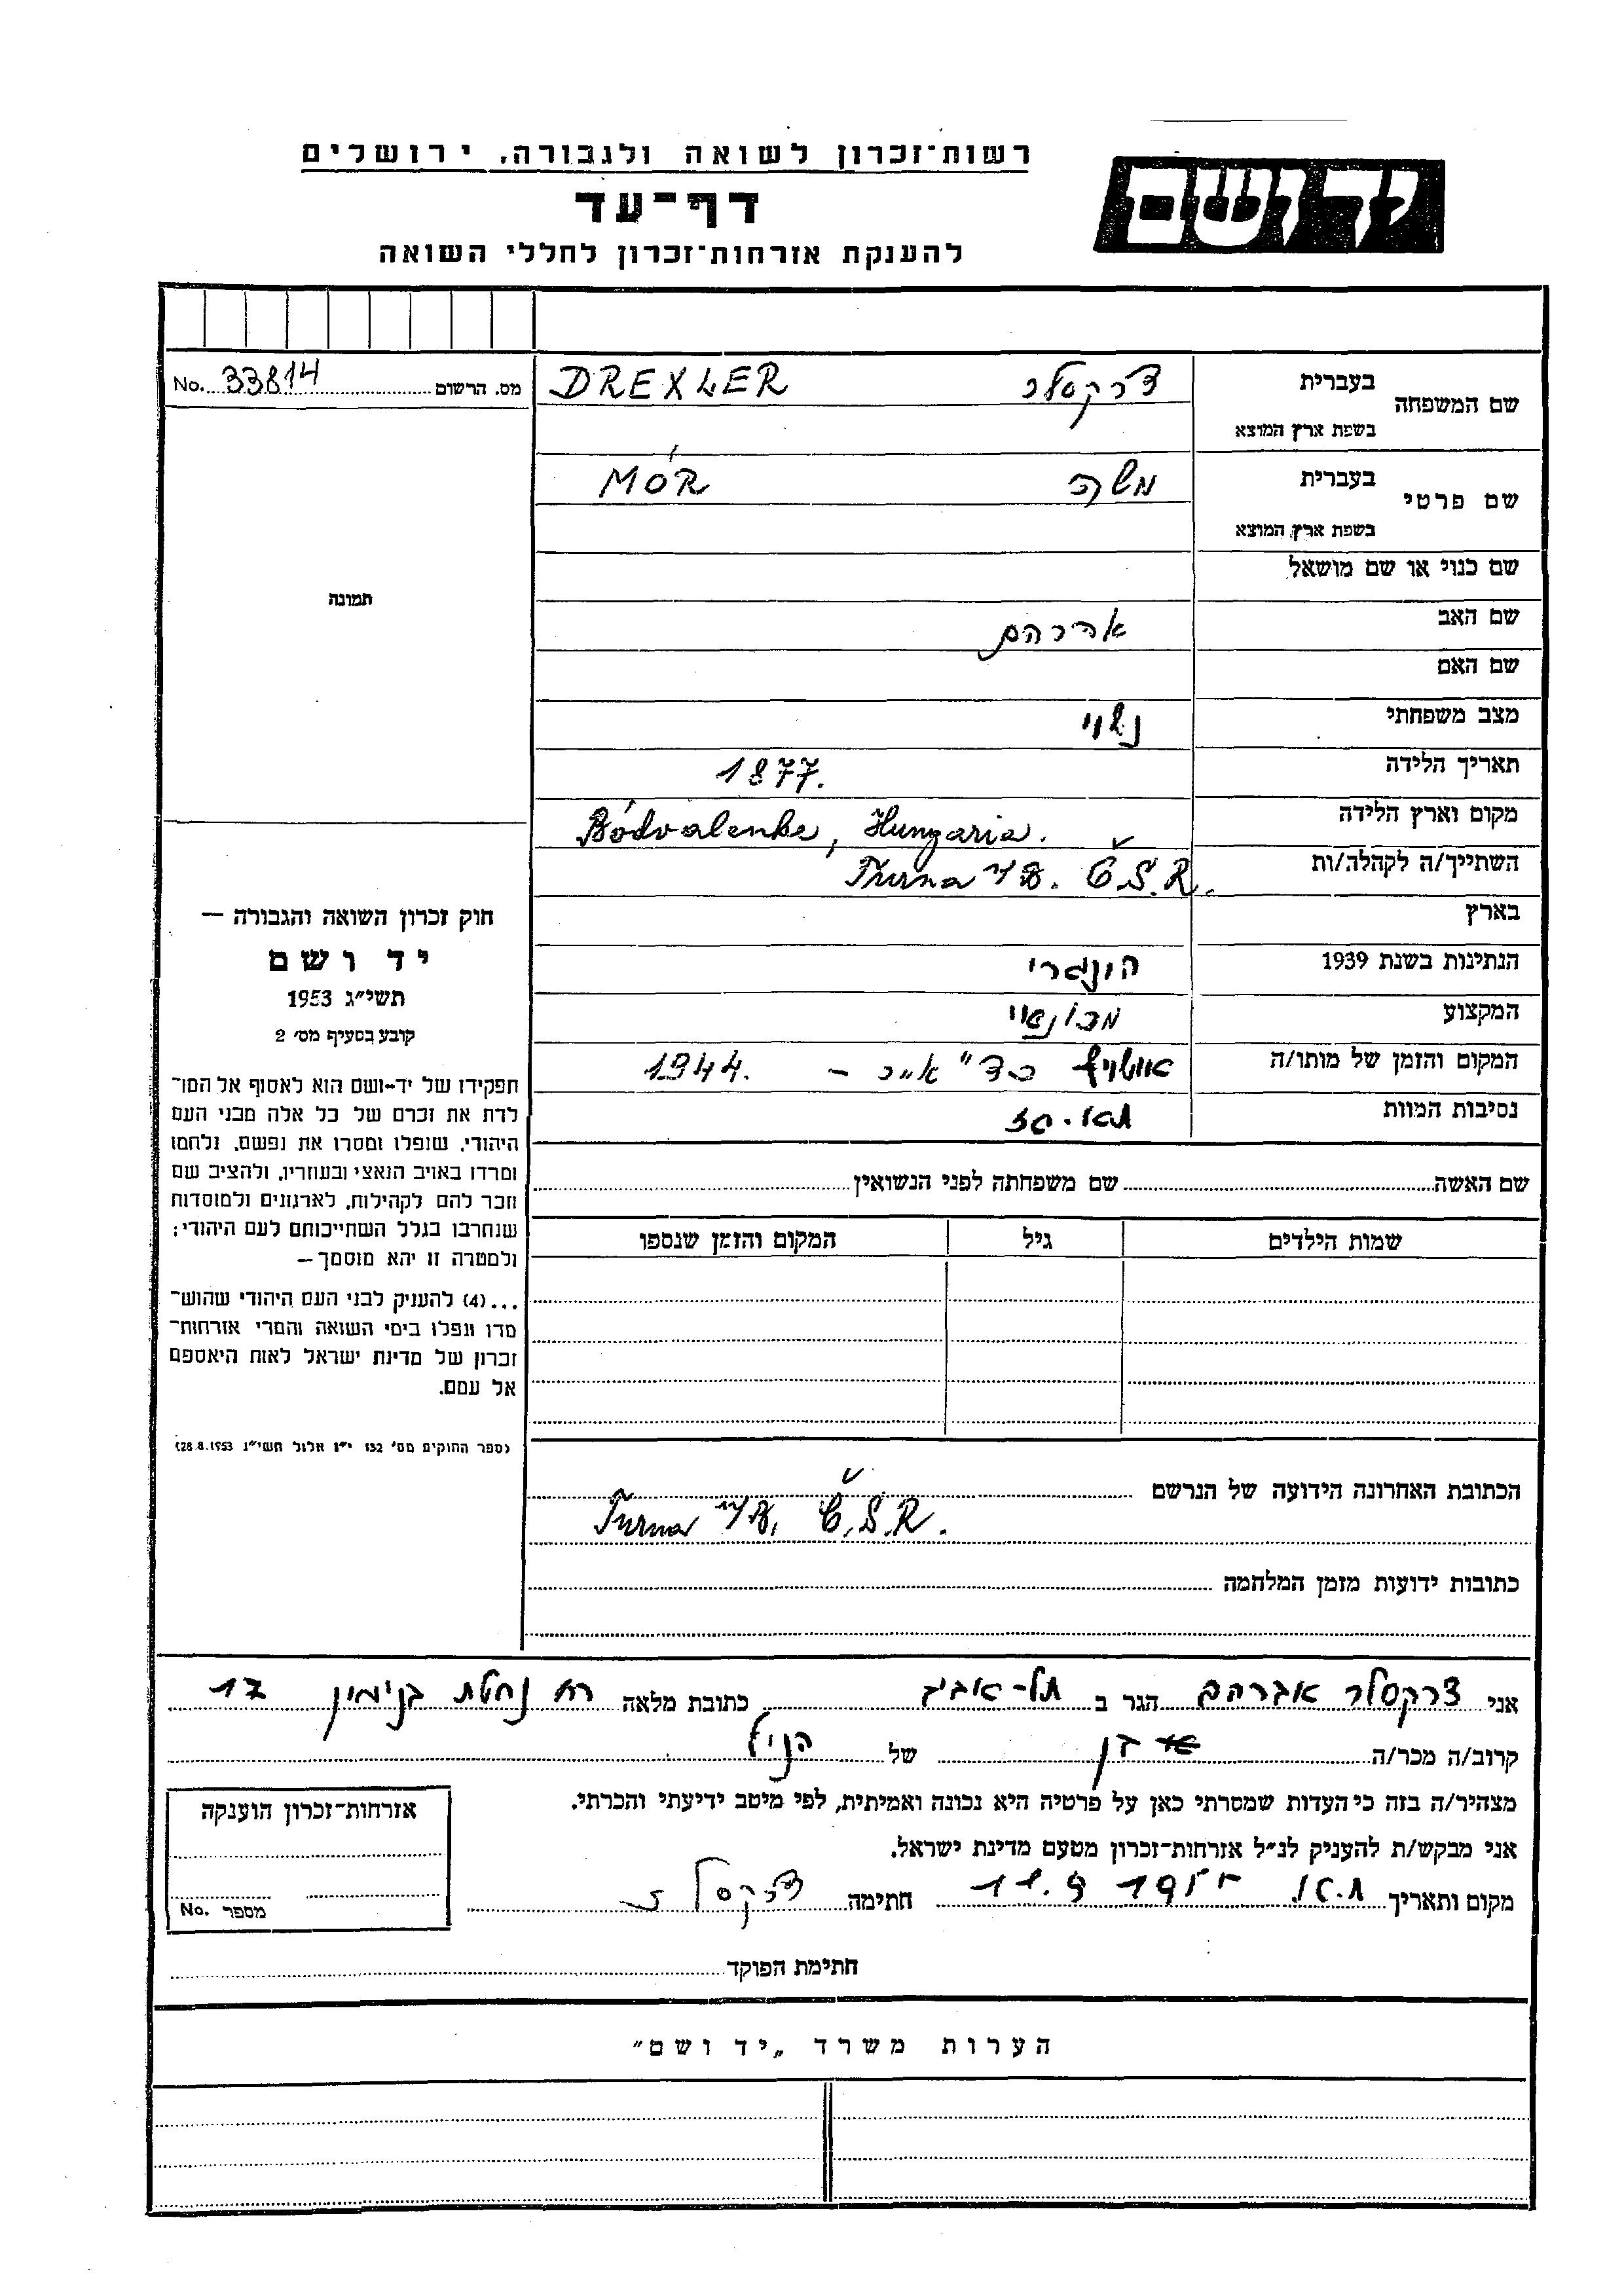 רשות־זכרון לשואה ולגבורה, ירושלים
יד ושם
דף־עד
להענקת אזרחות־זכרון לחללי השואה
מס. הרשום 33814 No.
שם המשפחה
בעברית דרקסלר DREXLER
בשפת ארץ המוצא
שם פרטי
בעברית משה MÓR
בשפת ארץ המוצא
שם כנוי או שם מושאל
שם האב אברהם
שם האם
מצב משפחתי נשוי
תאריך הלידה 1877.
מקום וארץ הלידה Bódvalenke, Hungaria.
השתייך/ה לקהלה/ות Turna n/B. Č.S.R.
בארץ
הנתינות בשנת 1939 הונגרי
המקצוע
המקום והזמן של מותו/ה אושויץ אייר – 1944.
נסיבות המוות
שם האשה שם משפחתה לפני הנשואין
שמות הילדים גיל המקום והזמן שנספו
הכתובת האחרונה הידועה של הנרשם
Turna n/B. Č.S.R.
כתובות ידועות מזמן המלחמה
תמונה
חוק זכרון השואה והגבורה —
יד ושם
תשי״ג 1953
קובע בסעיף מס׳ 2
תפקידו של יד-ושם הוא לאסוף אל המו־
לדת את זכרם של כל אלה מבני העם
היהודי, שנפלו ומסרו את נפשם, נלחמו
ומרדו באויב הנאצי ובעוזריו, ולהציב שם
וזכר להם לקהילות, לארגונים ולמוסדות
שנחרבו בגלל השתייכותם לעם היהודי;
ולמטרה זו יהא מוסמך —
...(4) להעניק לבני העם היהודי שהוש־
מדו ונפלו בימי השואה והמרי אזרחות־
זכרון של מדינת ישראל לאות היאספם
אל עמם.
(ספר החוקים מס׳ 132 י״ז אלול תשי״ג 28.8.1953)
אני דרקסלר אברהם הגר ב תל-אביב כתובת מלאה רח נחלת בנימין 17
קרוב/ה מכר/ה בן של הנ״ל
מצהיר/ה בזה כי העדות שמסרתי כאן על פרטיה היא נכונה ואמיתית, לפי מיטב ידיעתי והכרתי.
אני מבקש/ת להעניק לנ״ל אזרחות־זכרון מטעם מדינת ישראל.
מקום ותאריך חתימה
חתימת הפוקד
אזרחות־זכרון הוענקה
מספר No.
הערות משרד „יד ושם״